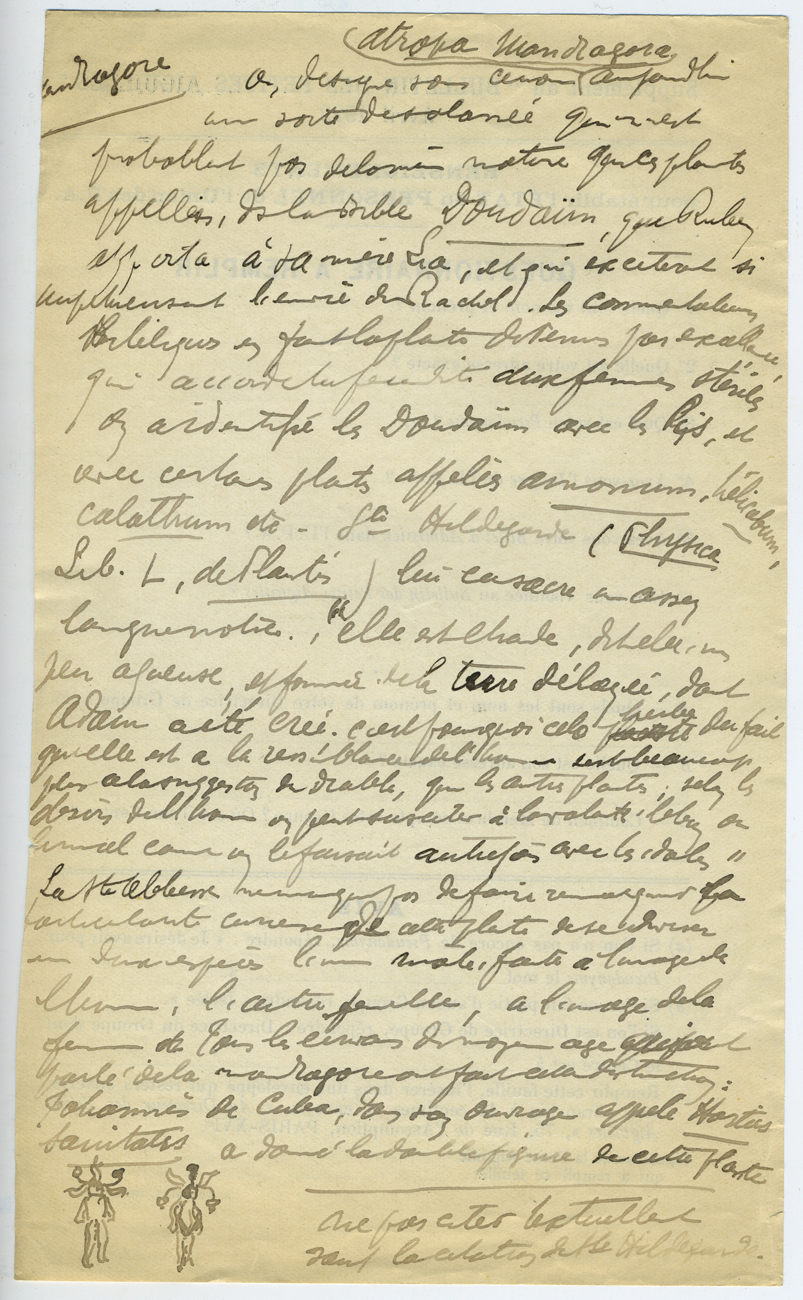 (atropa Mandragora)
andragore On désigne sous ce nom aujourd'hui
une sorte de solanée qui n'est
probablemt pas de la même nature que ces plantes
appellées, ds la Bible Doudaïm, que Ruben
apporta à sa mère Lia, et qui excitèrent si
impérieusement l'envie de Rachel. Les commentateurs
bibliques en font la plante de Vénus par excellence,
qui accorde la fécondité aux femmes stériles
On a identifié les Doudaïm avec les Lys, et
avec certaines plantes appelées amomum, hélicabum,
calathum etc - Ste Hildegarde (Physica
Lib. L, de Plantis) lui consacre une assez
longue notice. "elle est chaude, dit elle, un
peu aqueuse, et formée de la terre délayée, dont
Adam a été créé. c'est pourquoi cela herbe du fait
qu'elle est a la ressemblance de l'homme est beaucoup
plus a la suggestion du diable, que les autres plantes; selon les
désirs de l'homme on peut susciter à la volonté le bien ou
le mal comme on le faisait autrefois avec les idoles"
La Ste Abbesse ne manque pas de faire remarquer la
particularité curieuse de cette plante de se diviser
en deux espèces l'une male, faite à l'image de
l'homme, l'autre femelle, a l'image de la
femme. Tous les écrivains du moyen age qui ont
parlé de la mandragore ont fait cette distinction:
Johannès de Cuba, dans son ouvrage appelé Hortus
Sanitatis a donné la double figure de cette plante
ne pas citer textuellemt
sauf la citation de Ste Hildegarde.